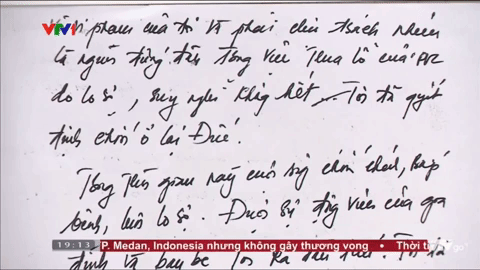 VTV1 vi phạm của tôi và phải chịu trách nhiệm
là người đứng đầu trong việc thua lỗ của PVC
do lo sợ, suy nghĩ không hết, Tôi đã quyết
định trốn ở lại Đức.
Trong thời gian này cuộc sống chốn chánh, bấp
bênh, luôn lo sợ. Được sự động viên của gia
đình và bạn bè Tôi ra đầu thú. Tôi
19:13 P. Medan, Indonesia nhưng không gây thương vong • Thời